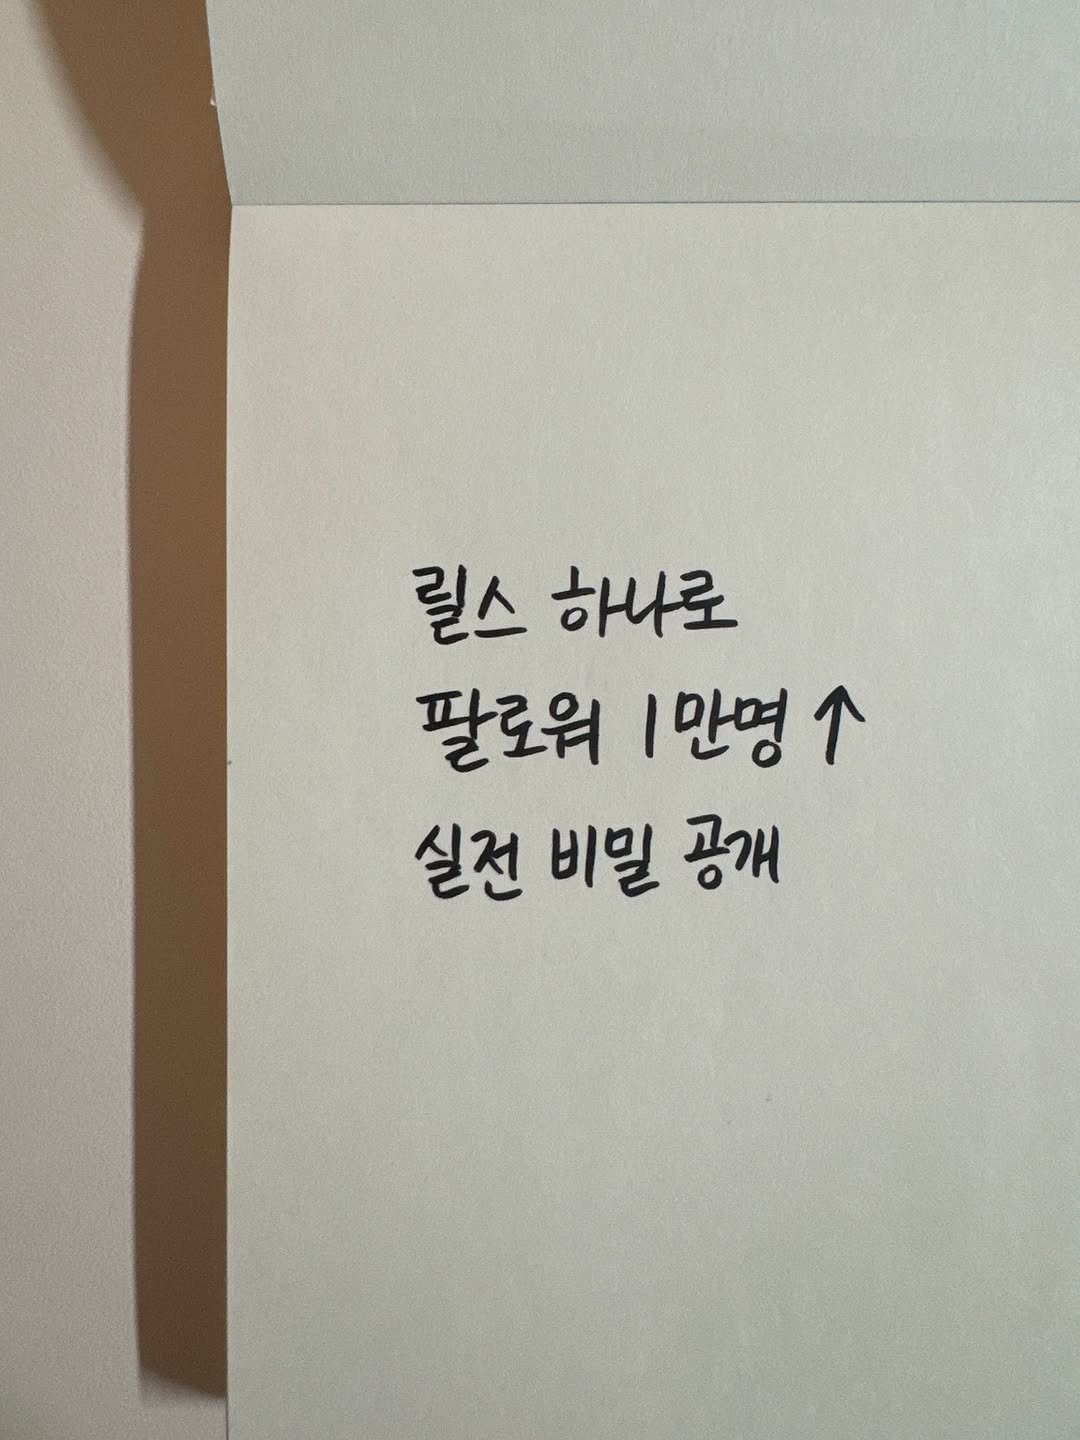 릴스 하나로
팔로워 1만명 ↑
실전 비밀 공개